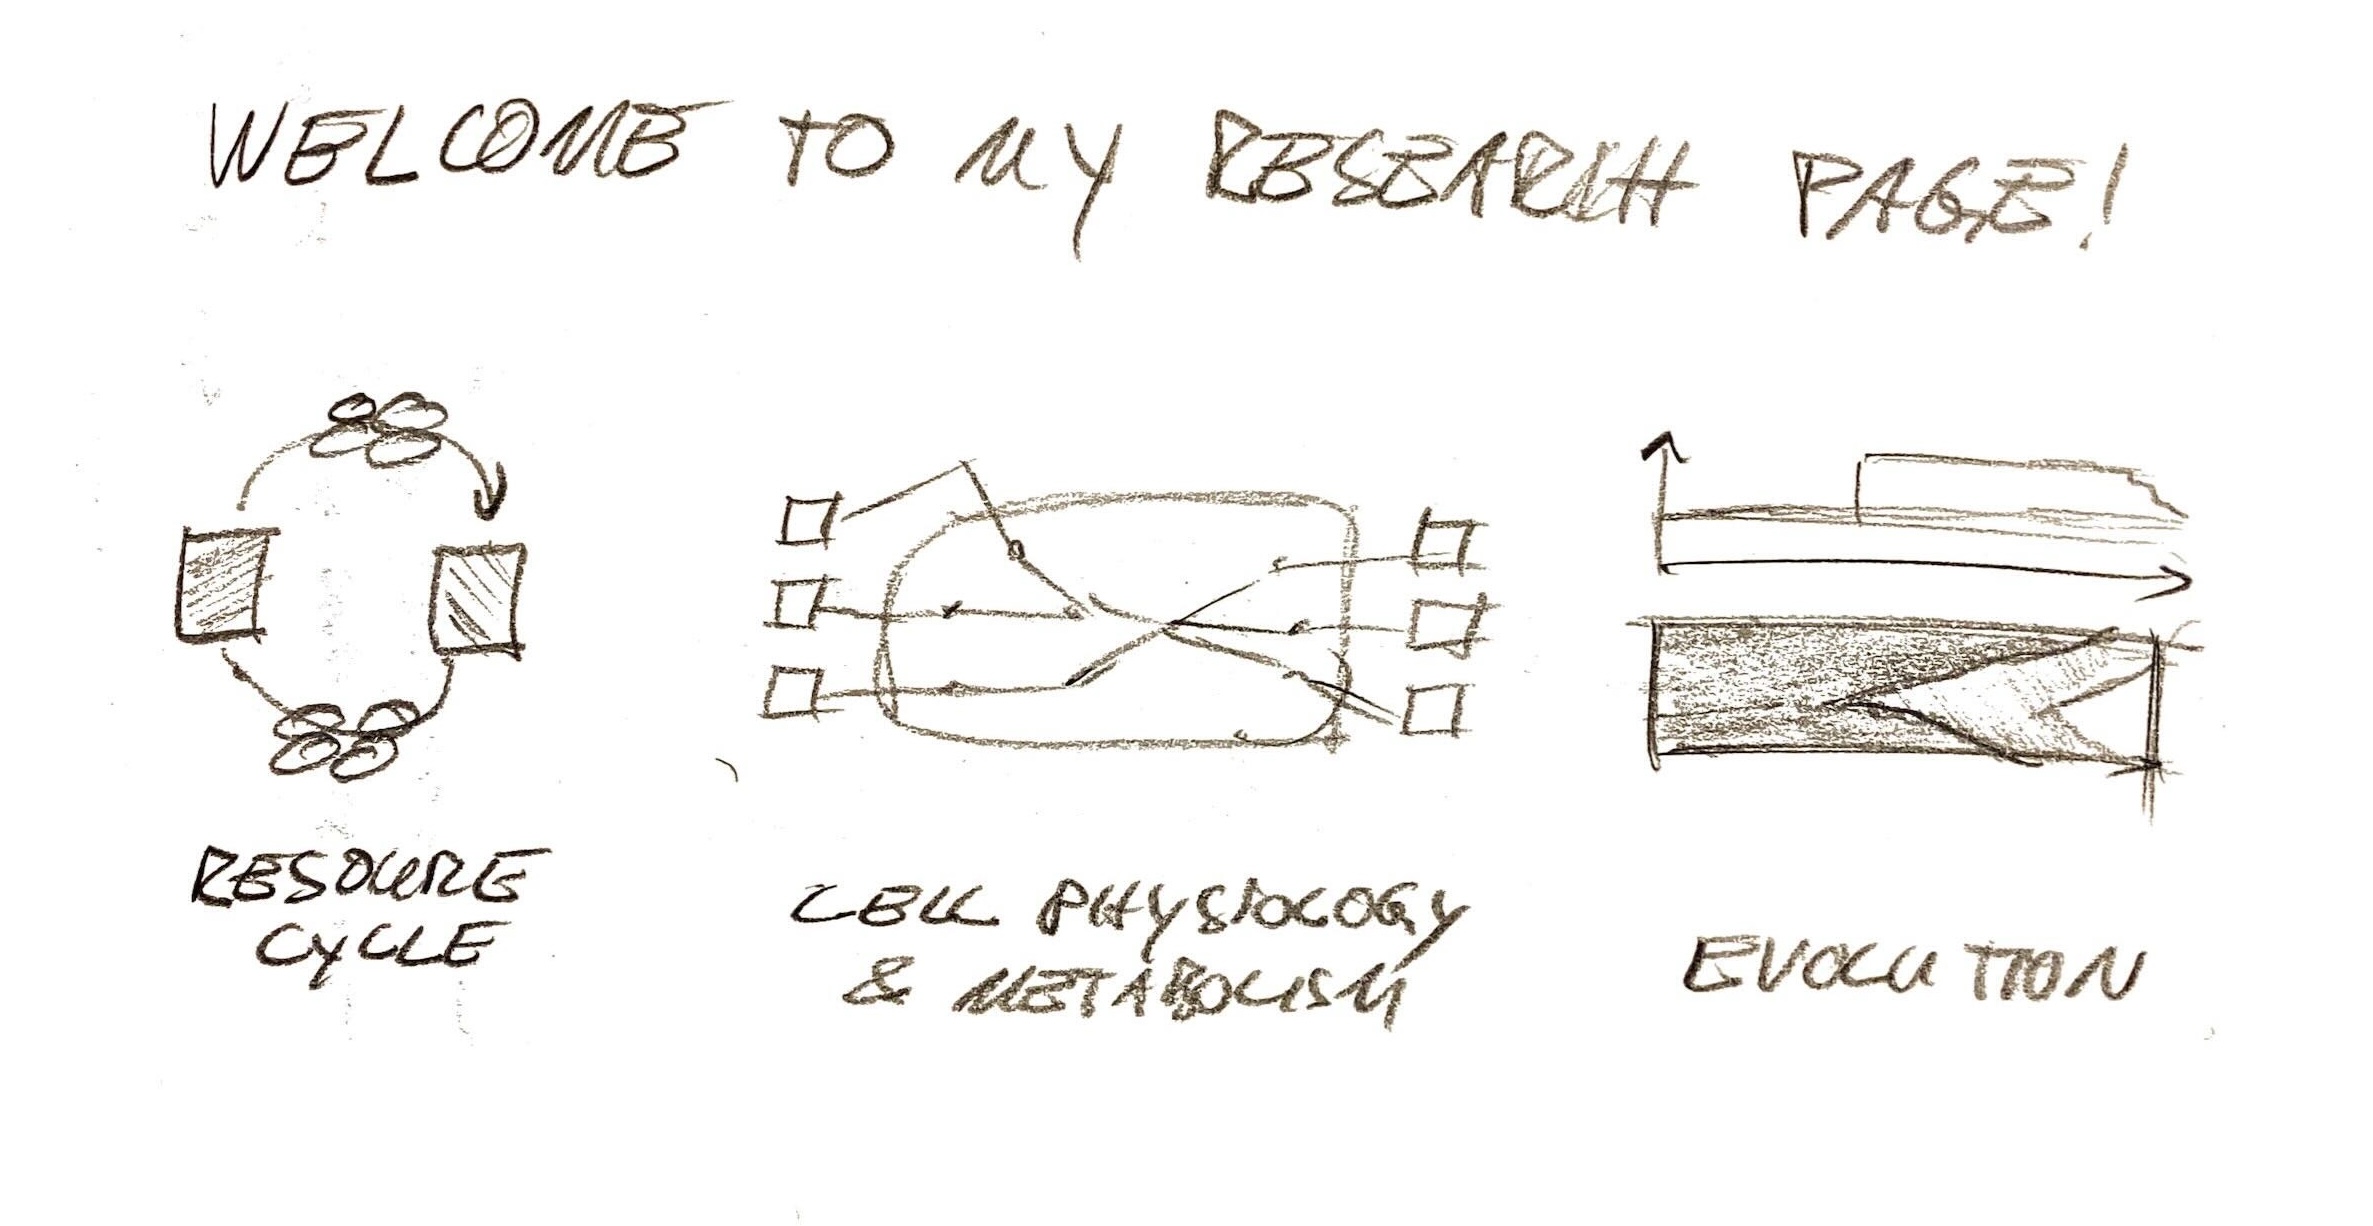 WELCOME TO MY RESEARCH PAGE!
RESOURCE
CYCLE
CELL PHYSIOLOGY
& METABOLISM
EVOLUTION